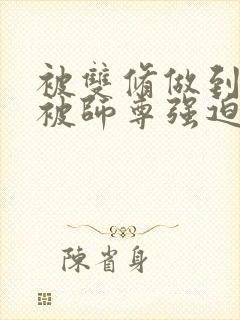 被雙脩做到
被師尊强迫
陳省身